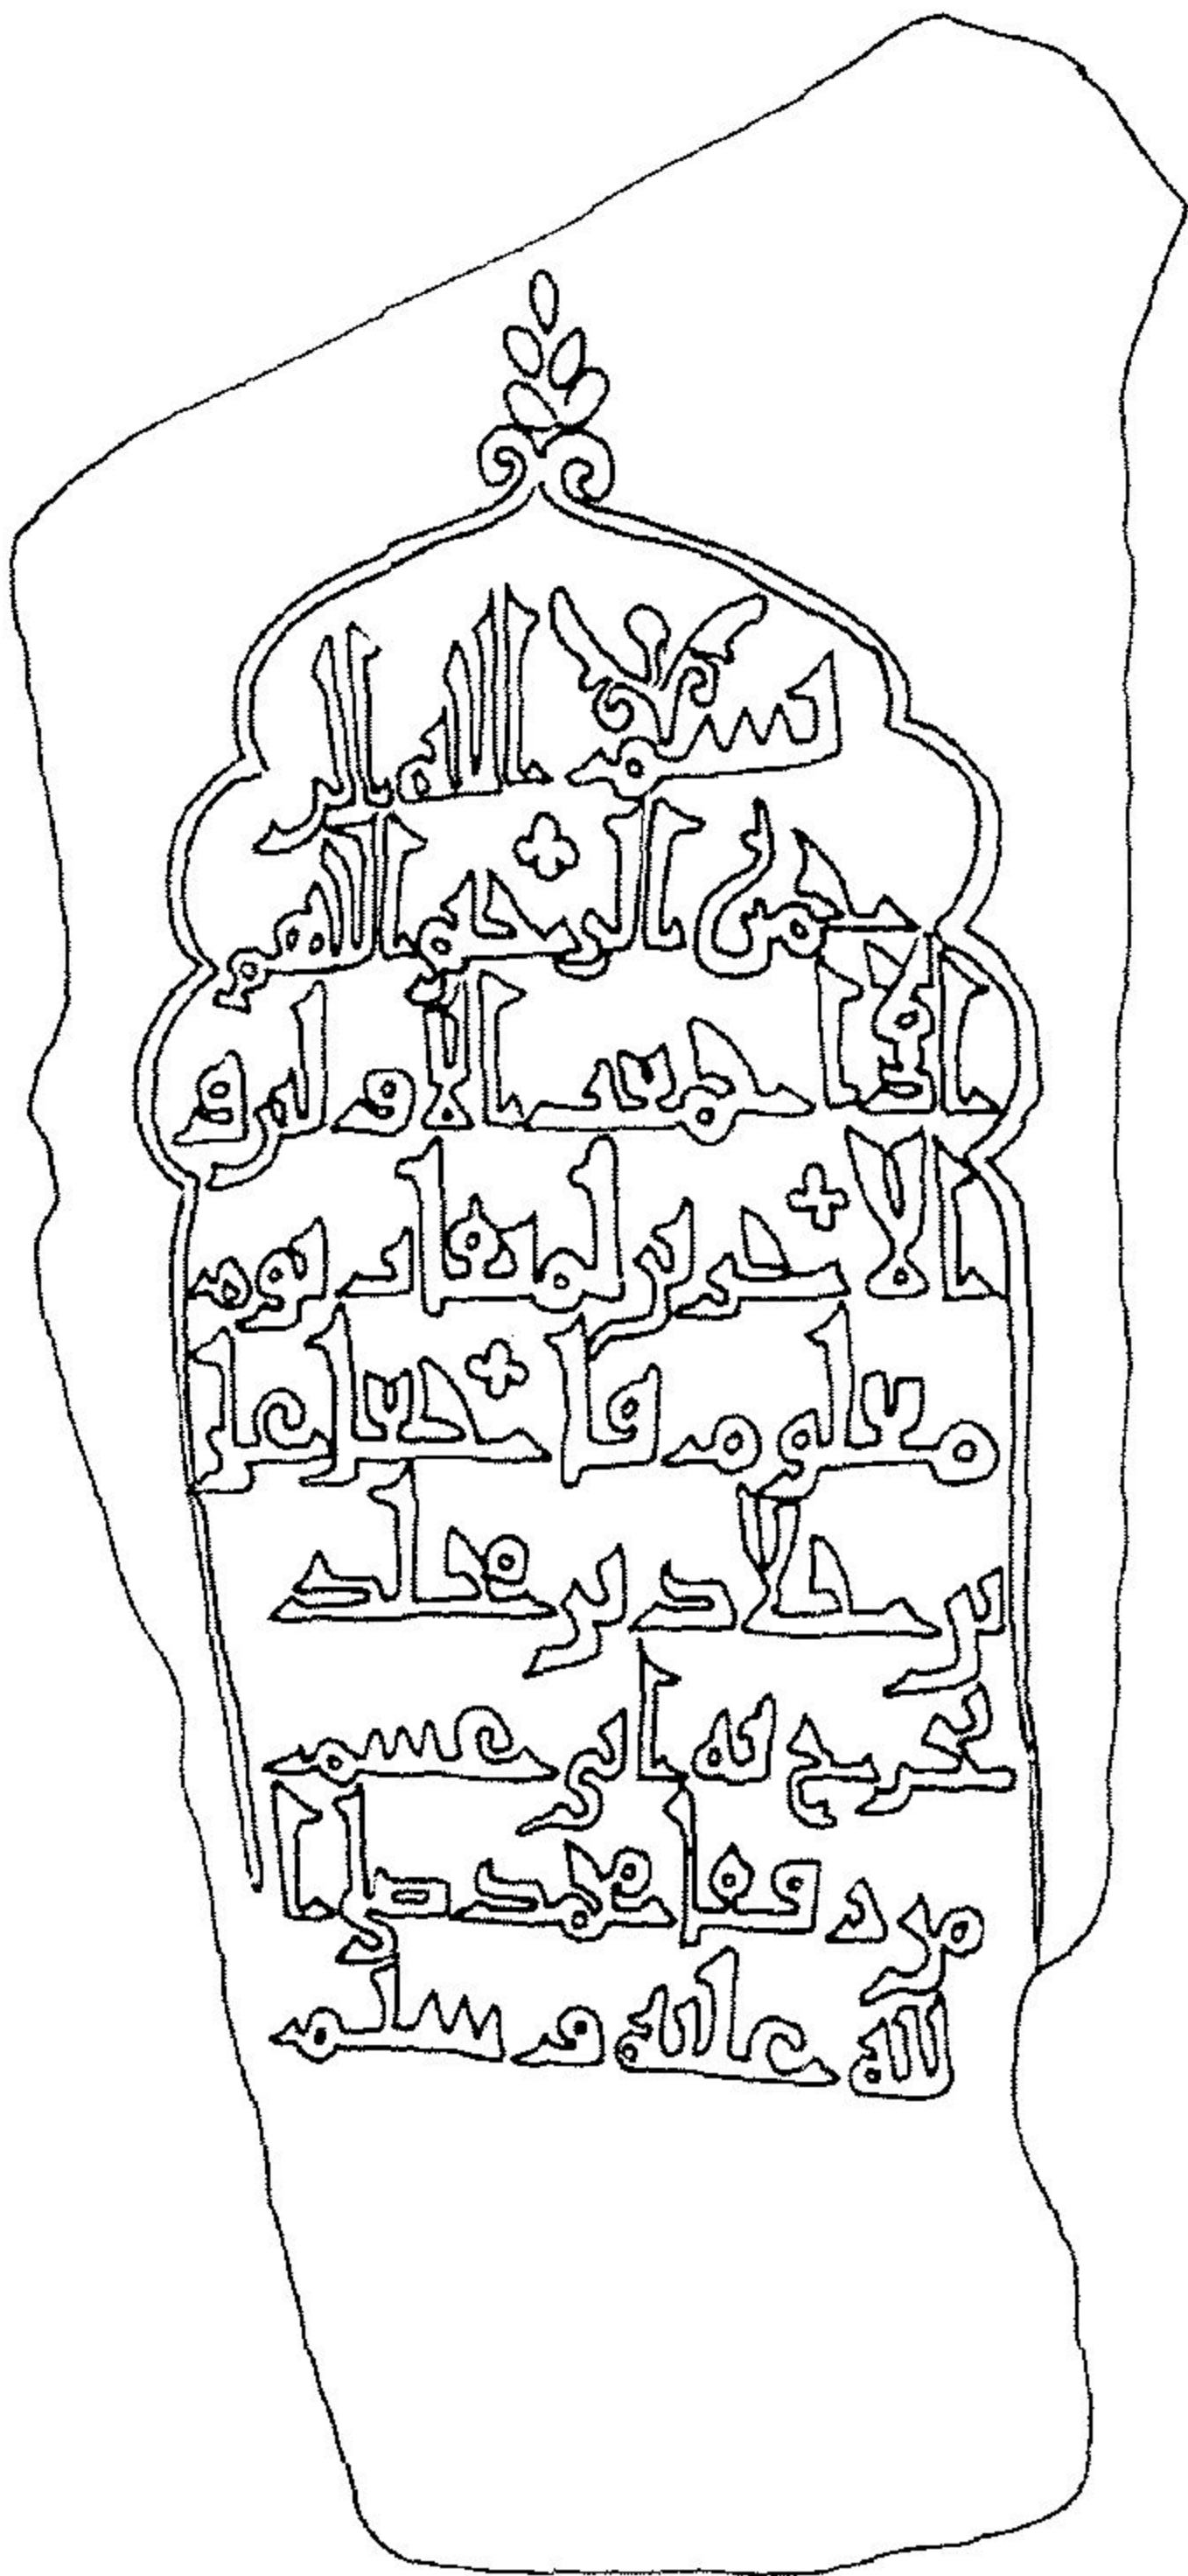 بسم الله الر
حمن الرحيم اللهم
اذا جمعت الاولين و
الاخرين لميقات يوم
معلوم فاجعل
بن خلاد بن
من رفقا محمد صلى ا
لله عليه وسلم